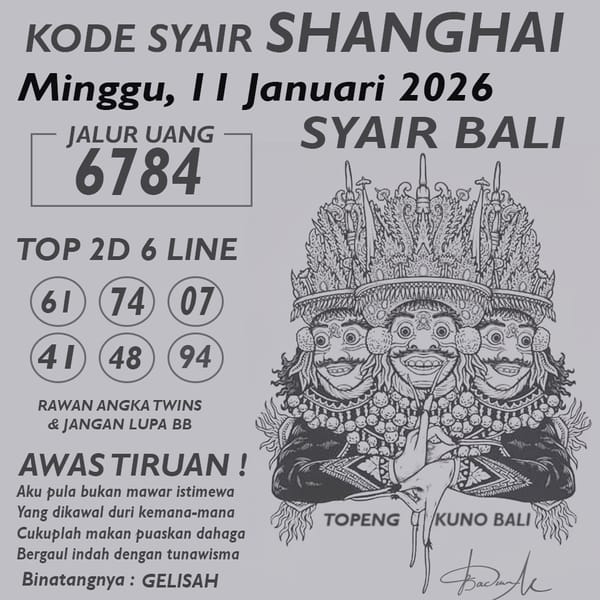 KODE SYAIR SHANGHAI
Minggu, 11 Januari 2026
JALUR UANG
6784
SYAIR BALI
TOP 2D 6 LINE
61 74 07
41 48 94
RAWAN ANGKA TWINS
& JANGAN LUPA BB
AWAS TIRUAN !
Aku pula bukan mawar istimewa
Yang dikawal duri kemana-mana
Cukuplah makan puaskan dahaga
Bergaul indah dengan tunawisma
Binatangnya : GELISAH
TOPENG KUNO BALI